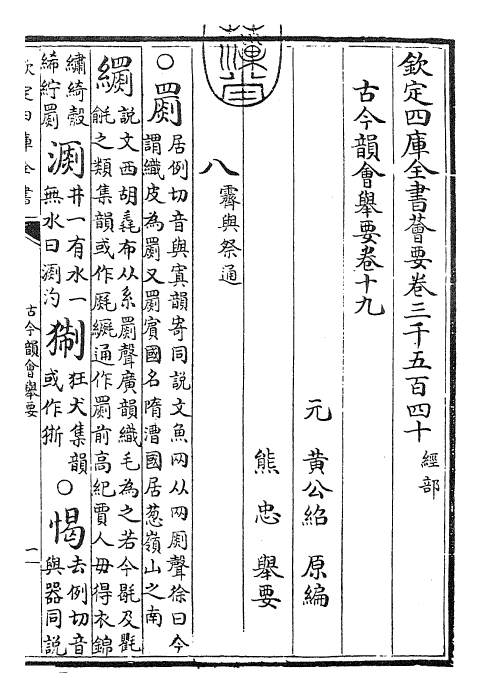 欽定四庫全書薈要卷三千五百四十 經部
古今韻會舉要卷十九
元 黃公紹 原編
熊 忠 舉要
八 霽與祭通
○罽 居例切音與寘韻寄同説文魚网从网㓹聲徐曰今
謂織皮為罽又罽賔國名隋漕國居葱嶺山之南
繝 説文西胡毳布从糸罽聲廣韻織毛為之若今毼及氍
毹之類集韻或作㲯𦇧通作罽前高紀賈人毋得衣錦
繡綺縠
絺紵罽 㓹 井一有水一
無水曰㓹汋 猘 狂犬集韻
或作狾 ○愒 去例切音
與器同説
古今韻會舉要
一